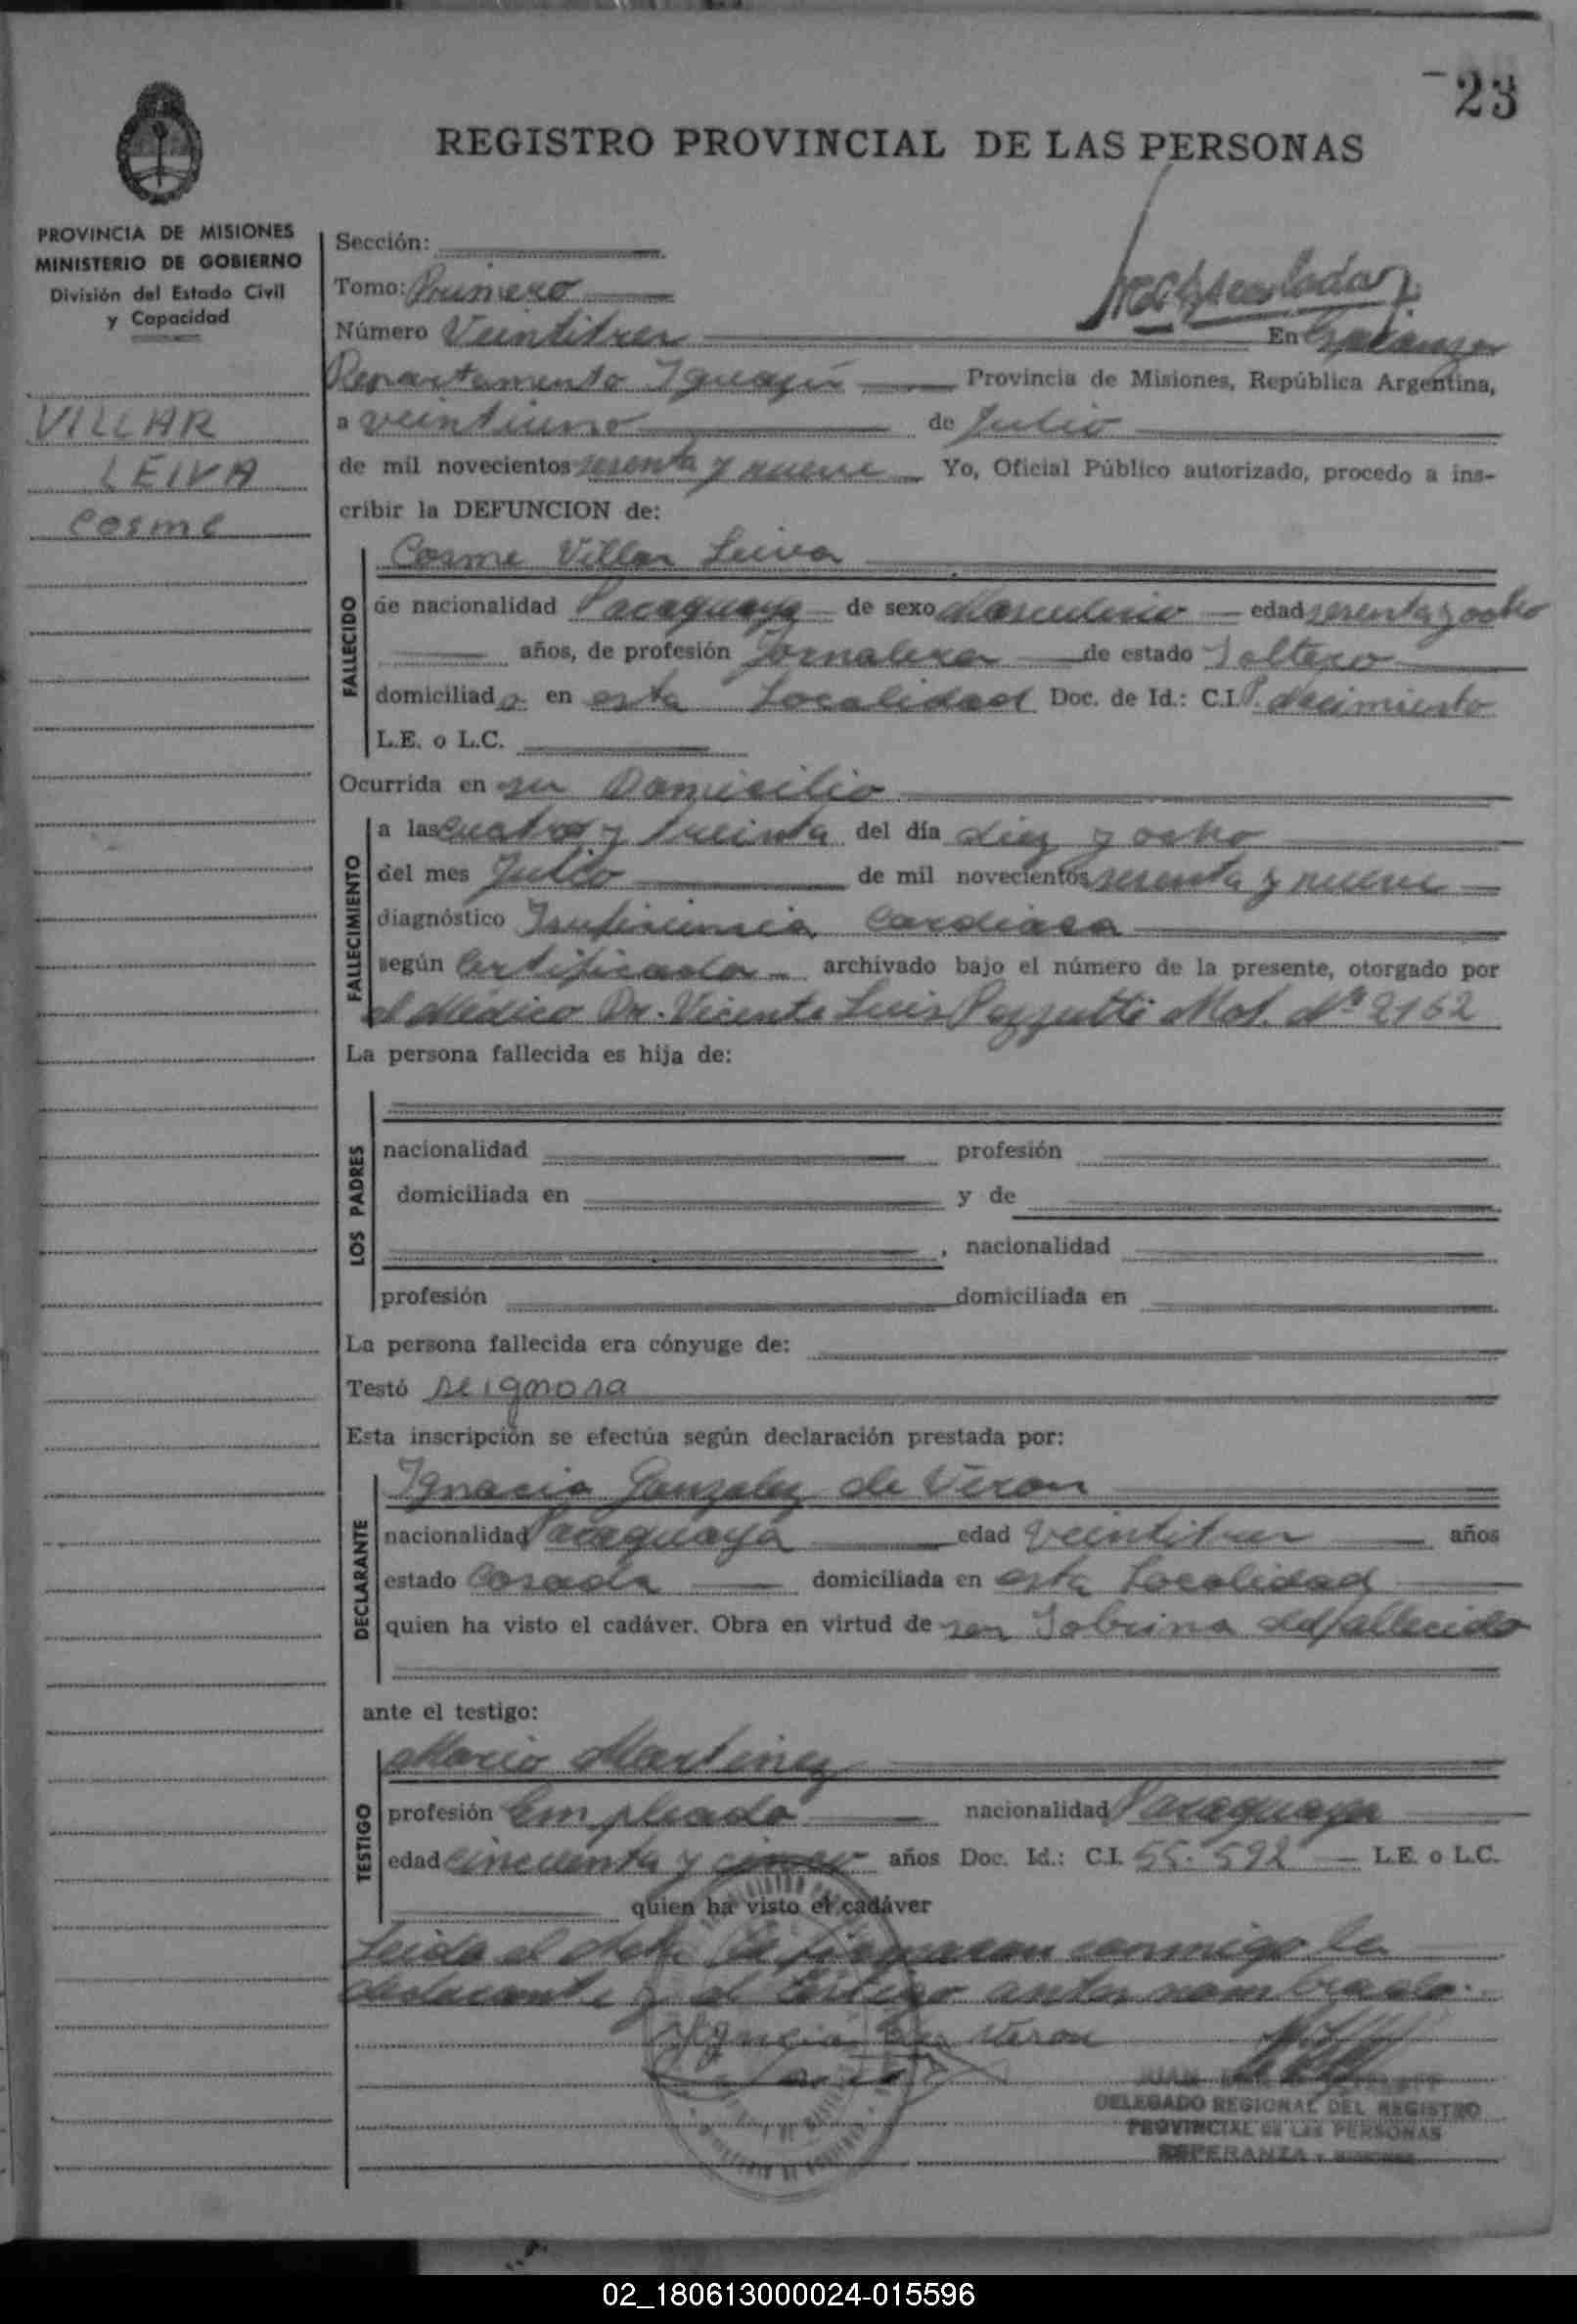 23
REGISTRO PROVINCIAL DE LAS PERSONAS
PROVINCIA DE MISIONES
MINISTERIO DE GOBIERNO
División del Estado Civil
y Capacidad
VILLAR
LEIVA
Cosme
Sección:
Tomo: Primero
Número Veintitres En Esperanza
Departamento Iguazú Provincia de Misiones, República Argentina,
a veintiuno de Julio
de mil novecientos sesenta y nueve Yo, Oficial Público autorizado, procedo a ins-
cribir la DEFUNCION de:
Cosme Villar Leiva
FALLECIDO
de nacionalidad Paraguaya de sexo Masculino edad sesenta y ocho
años, de profesión Jornalero de estado Soltero
domiciliado en esta Localidad Doc. de Id.: C.I. P. Nacimiento
L.E. o L.C.
Ocurrida en su Domicilio
FALLECIMIENTO
a las cuatro y treinta del día diez y ocho
del mes Julio de mil novecientos sesenta y nueve
diagnóstico Insuficiencia Cardiaca
según Certificado archivado bajo el número de la presente, otorgado por
el Médico Dr. Vicente Luis Pezzutti Mat. Nº 2162
La persona fallecida es hija de:
LOS PADRES
nacionalidad profesión
domiciliada en y de
, nacionalidad
profesión domiciliada en
La persona fallecida era cónyuge de:
Testó se ignora
Esta inscripción se efectúa según declaración prestada por:
DECLARANTE
Ignacia Gonzalez de Veron
nacionalidad Paraguaya edad veintitres años
estado Casada domiciliada en esta Localidad
quien ha visto el cadáver. Obra en virtud de ser Sobrina del fallecido
ante el testigo:
TESTIGO
Mario Martinez
profesión Empleado nacionalidad Paraguaya
edad cincuenta y cinco años Doc. Id.: C.I. 55.592 L.E. o L.C.
quien ha visto el cadáver
Leida el Acta la firmaron conmigo la
declarante y el testigo antes nombrado.
Ignacia de Veron
JUAN
DELEGADO REGIONAL DEL REGISTRO
PROVINCIAL DE LAS PERSONAS
ESPERANZA - MISIONES
02_180613000024-015596